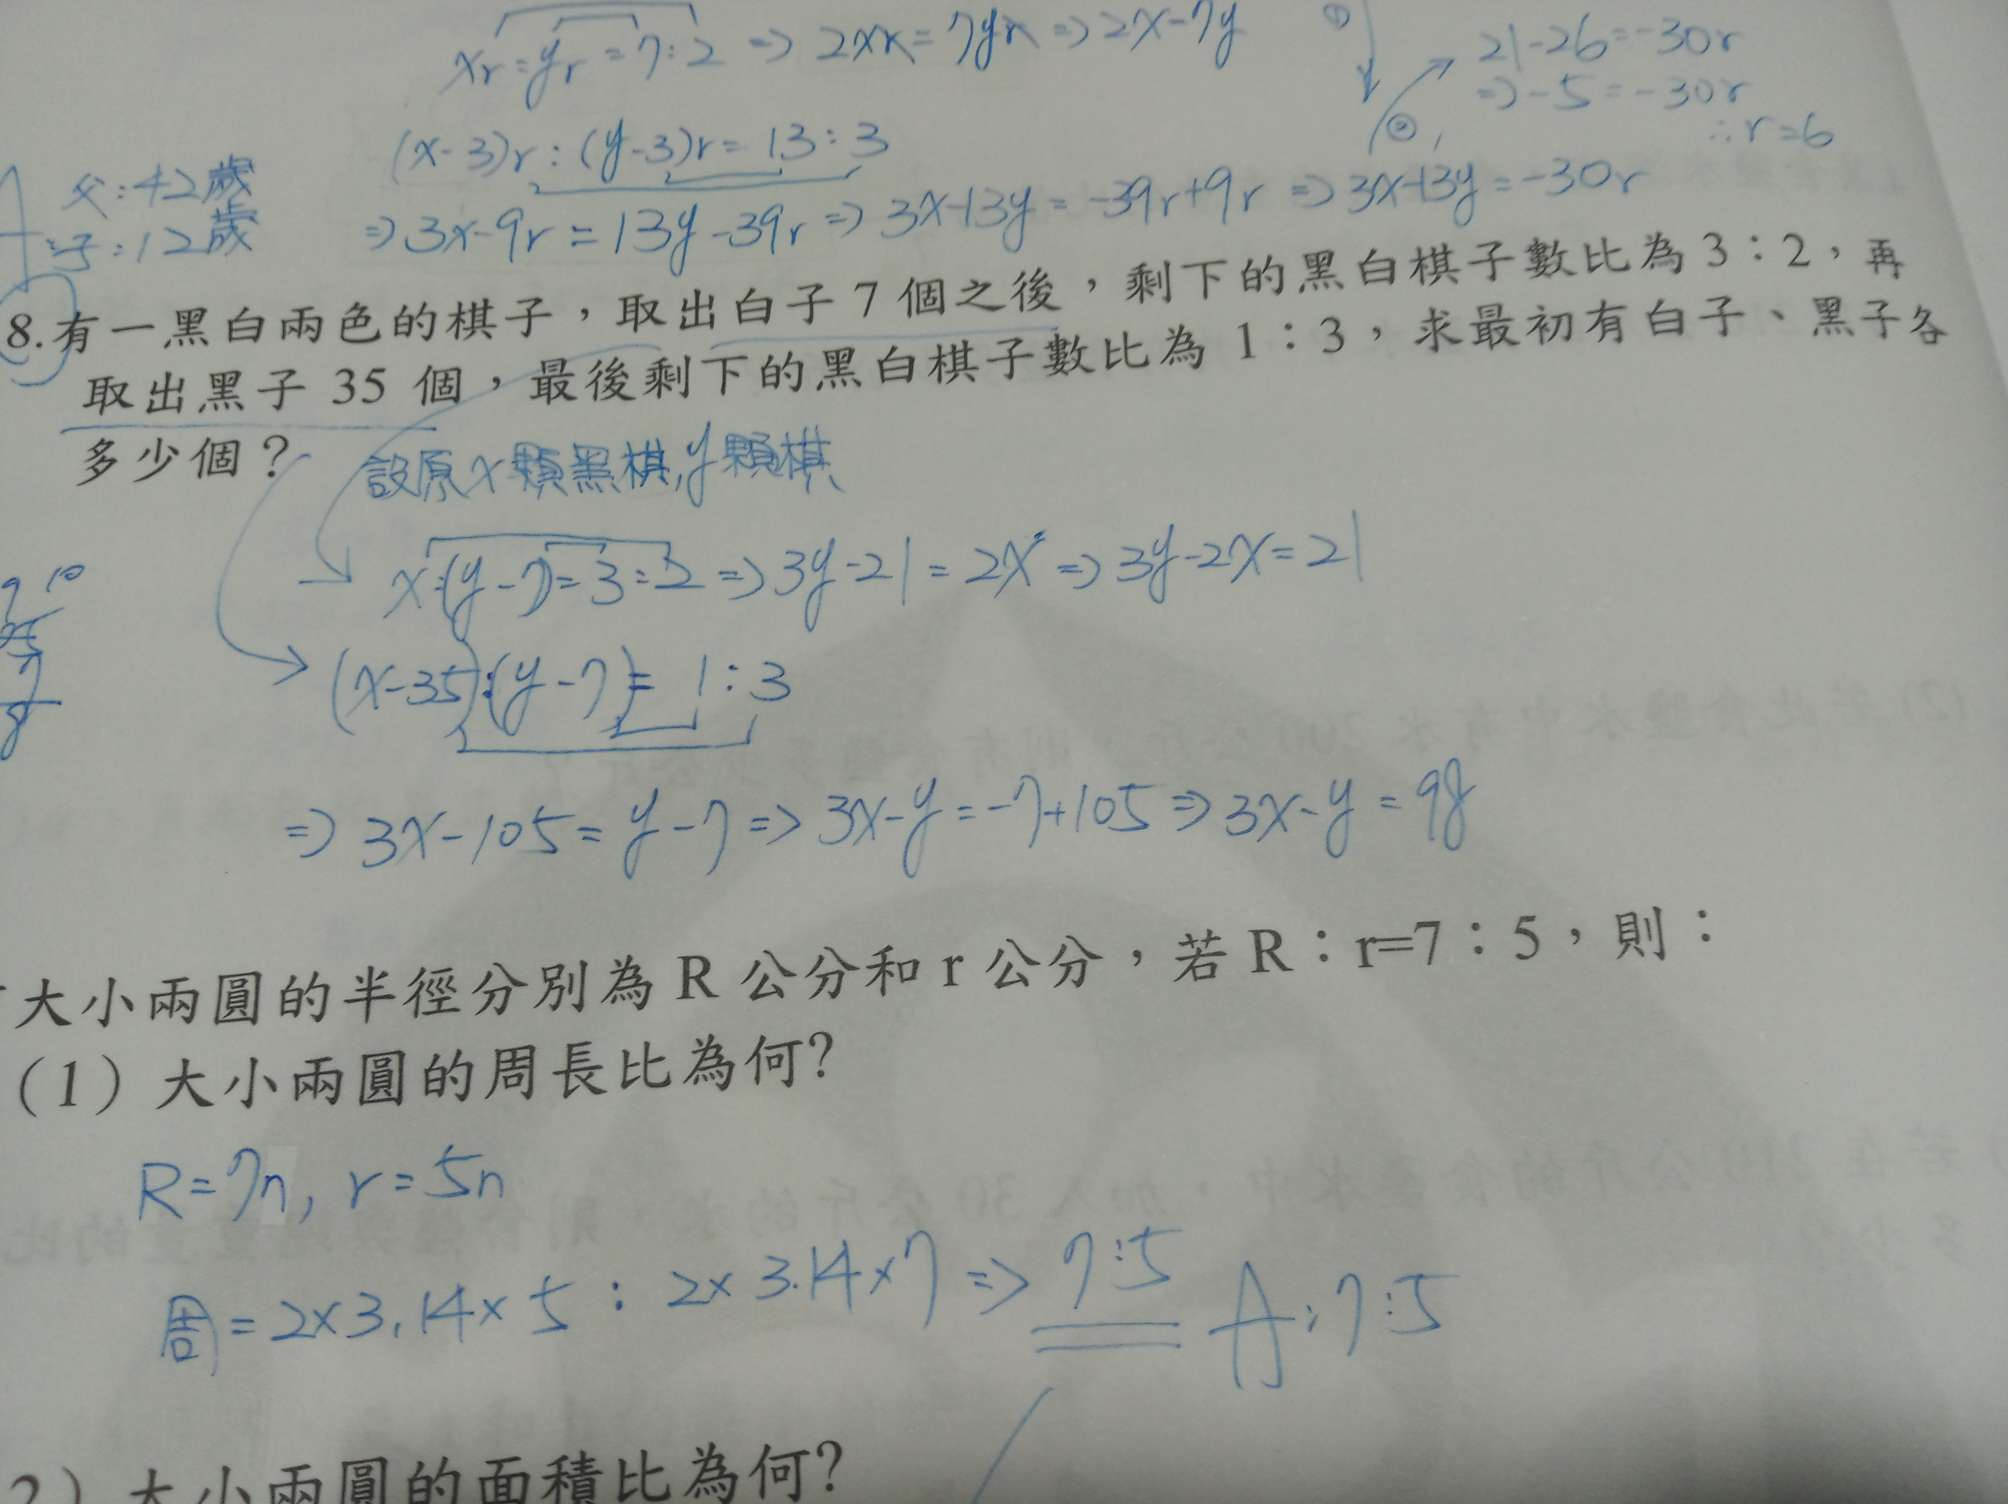 xr:yr=7:2 => 2xx=7yx => 2x-7y
①
21-26=-30r
=>-5=-30r
②
∴r=6
(x-3)r:(y-3)r=13:3
父:42歲
子:12歲
=>3x-9r=13y-39r=>3x-13y=-39r+9r=>3x-13y=-30r
8.有一黑白兩色的棋子，取出白子 7 個之後，剩下的黑白棋子數比為 3：2，再
取出黑子 35 個，最後剩下的黑白棋子數比為 1：3，求最初有白子、黑子各
多少個？
設原x顆黑棋,y顆棋
x:(y-7)=3:2=>3y-21=2x=>3y-2x=21
(x-35):(y-7)=1:3
=>3x-105=y-7=>3x-y=-7+105=>3x-y=98
大小兩圓的半徑分別為 R 公分和 r 公分，若 R：r=7：5，則：
（1）大小兩圓的周長比為何?
R=7n, r=5n
周=2x3.14x5:2x3.14x7=>7:5 A:7:5
2）大小兩圓的面積比為何?